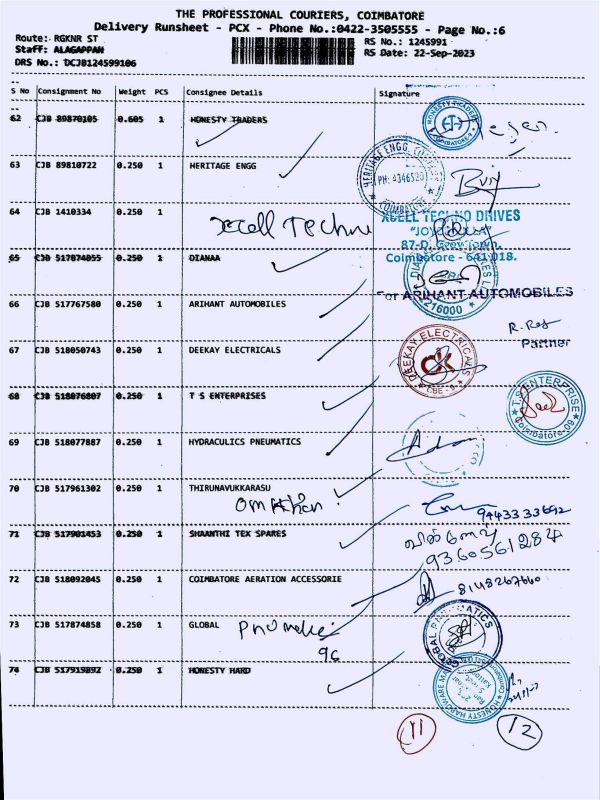 THE PROFESSIONAL COURIERS, COIMBATORE
Delivery Runsheet - PCX - Phone No.:0422-3505555 - Page No.:6
Route: RGKNR ST
RS No.: 1245991
Staff: ALAGAPPAN
RS Date: 22-Sep-2023
DRS No.: DCJB124599106
S No Consignment No Weight PCS Consignee Details Signature
62 CJB 89870105 0.605 1 HONESTY TRADERS
HONESTY TRADERS
63 CJB 89810722 0.250 1 HERITAGE ENGG
HERITAGE ENGG.
PH: 4346520
COIMBATORE
64 CJB 1410334 0.250 1 Xcell Techno
XCELL TECHNO DRIVES
87-D,
Coimbatore - 641 018.
65 CJB 517874055 0.250 1 DIANAA
216000
66 CJB 517767580 0.250 1 ARIHANT AUTOMOBILES
For ARIHANT AUTOMOBILES
Partner
67 CJB 518050743 0.250 1 DEEKAY ELECTRICALS
DEEKAY ELECTRICALS
DK
CBE-9
68 CJB 518076807 0.250 1 T S ENTERPRISES
T.S ENTERPRISE
Coimbatore-09
69 CJB 518077887 0.250 1 HYDRACULICS PNEUMATICS
70 CJB 517961302 0.250 1 THIRUNAVUKKARASU
9443333692
71 CJB 517901453 0.250 1 SHAANTHI TEX SPARES
9360561284
72 CJB 518092045 0.250 1 COIMBATORE AERATION ACCESSORIE
8148267660
73 CJB 517874858 0.250 1 GLOBAL
GLOBAL PNEUMATICS
74 CJB 517919892 0.250 1 HONESTY HARD
HONESTY HARDWARE
11
12